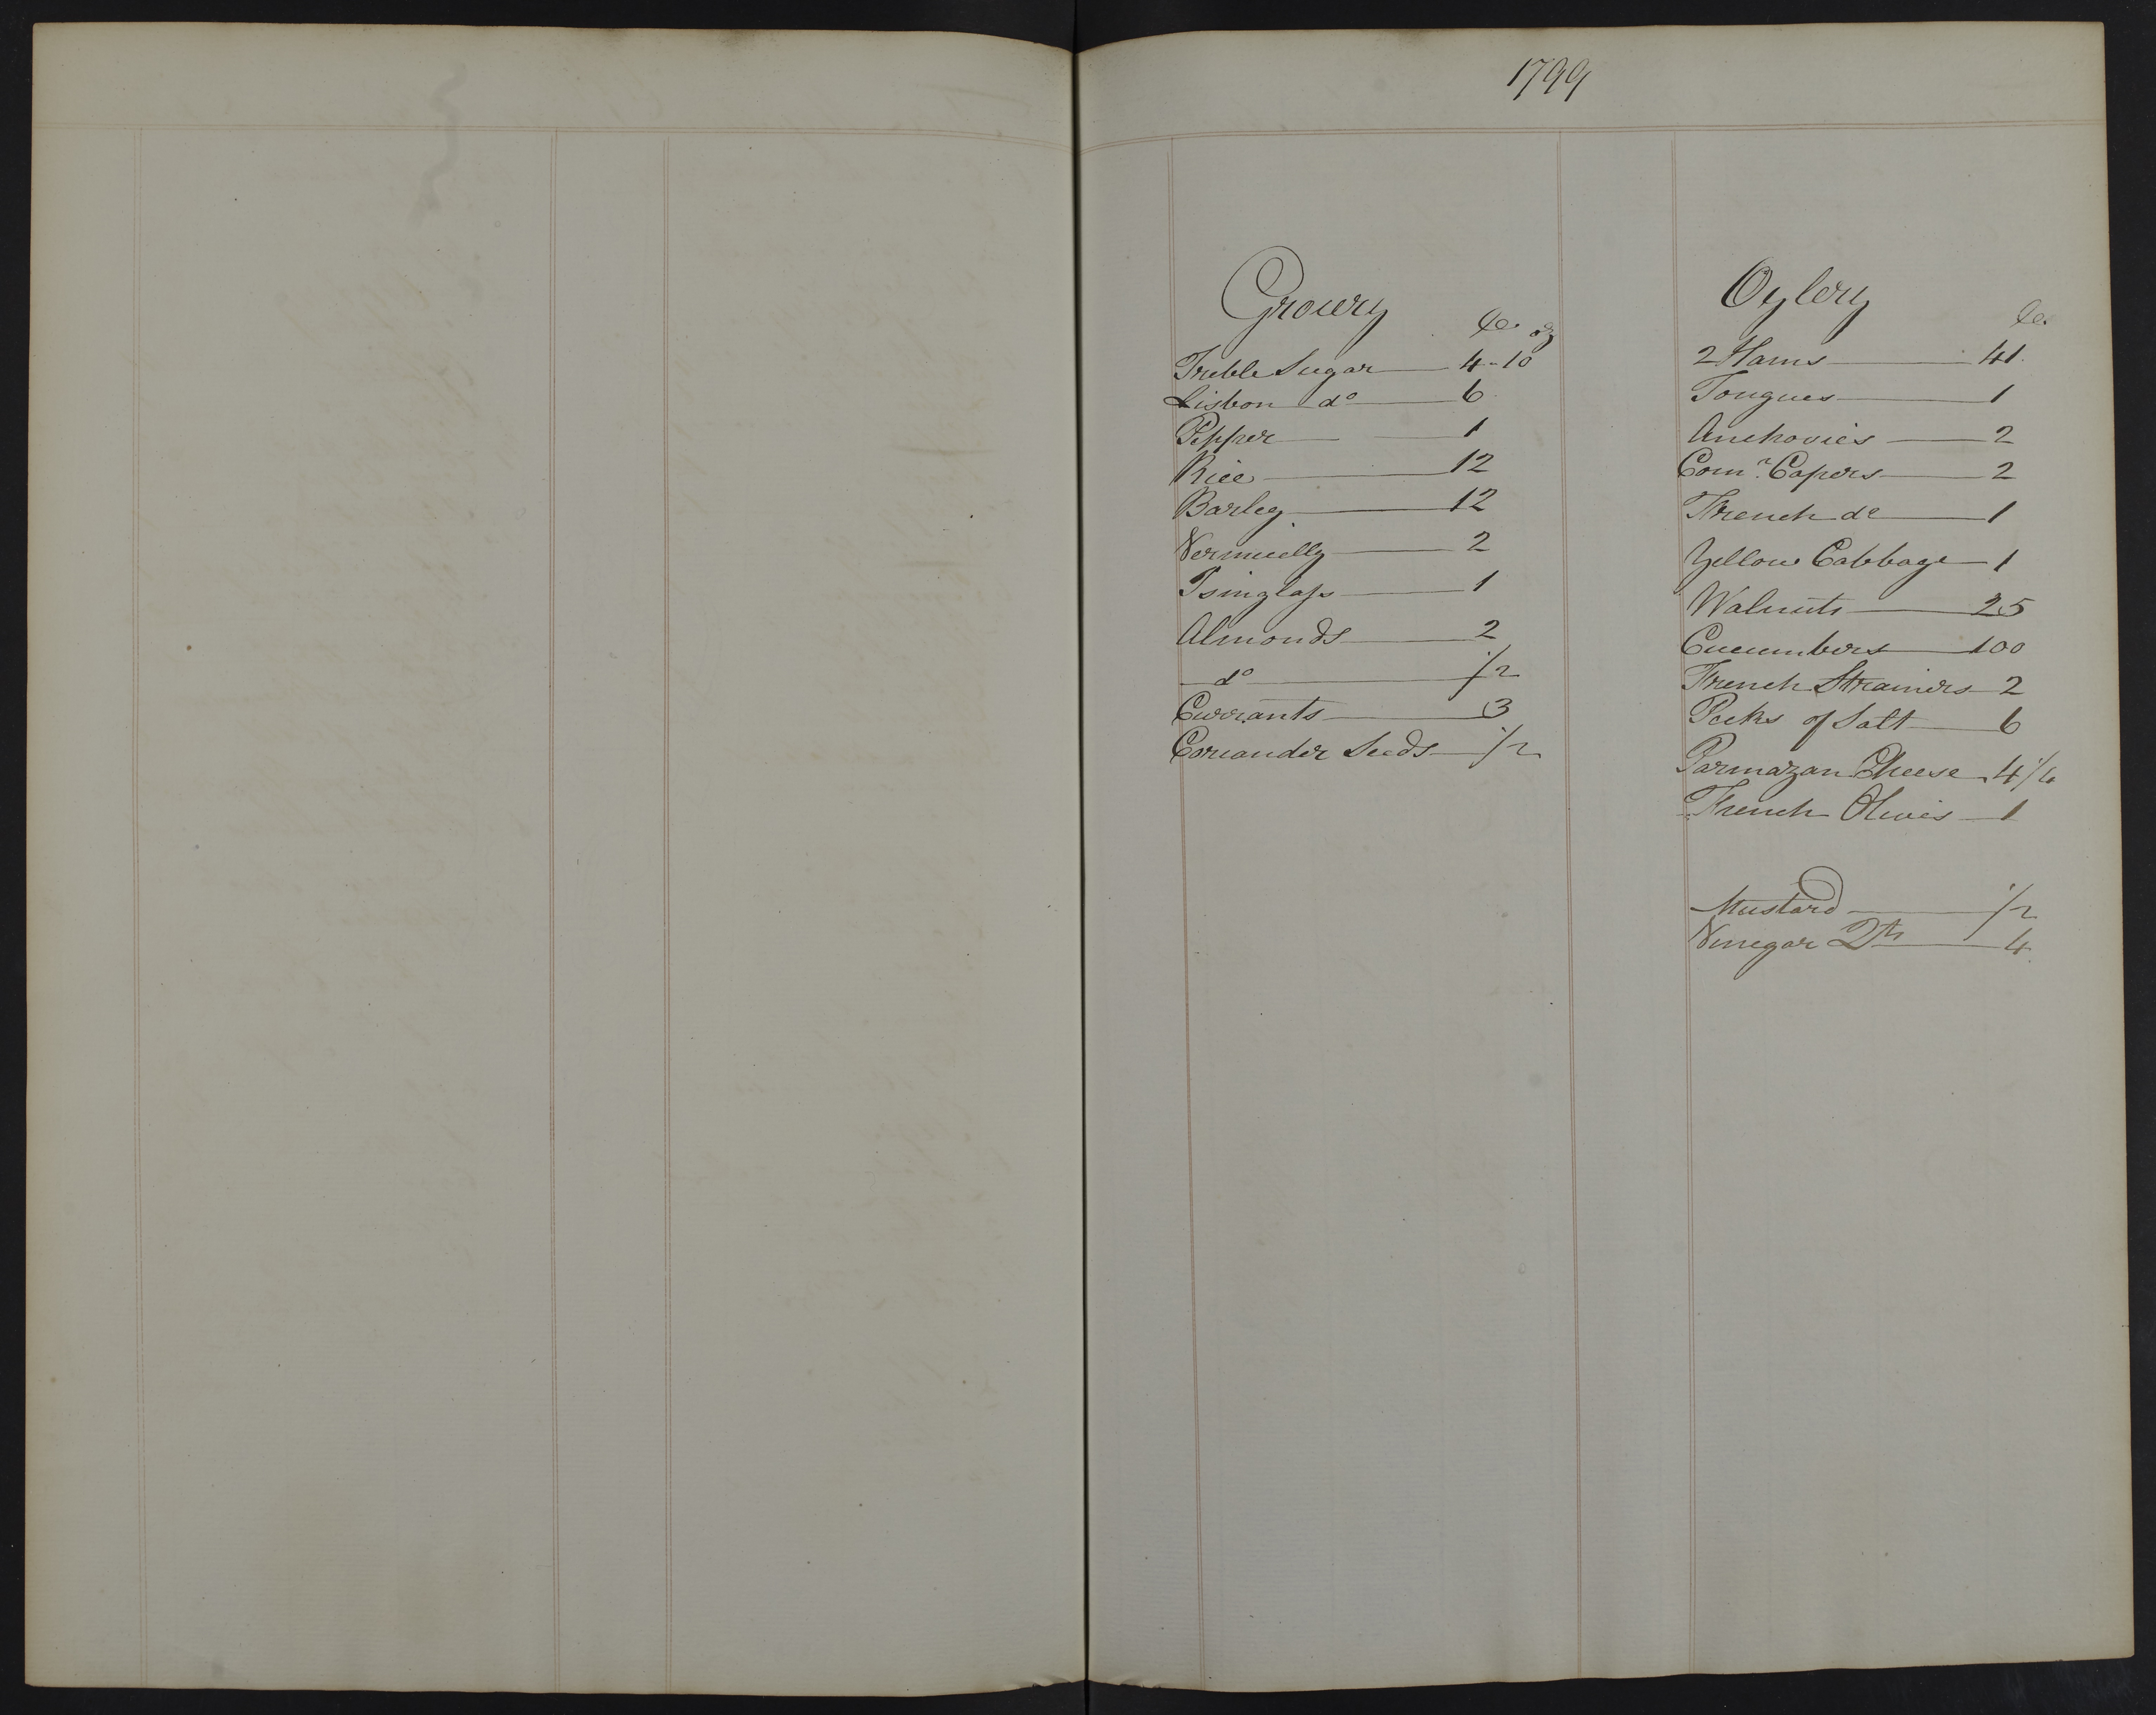 1799
Grocery
lb. oz
Treble Sugar 4-10
Lisbon do 6
Pepper 1
Rice 12
Barley 12
Vermicelly 2
Isinglass 1
Almonds 2
do 1/2
Currants 3
Coriander Seeds 1/2
Oylery
lb.
2 Hams 41
Tongues 1
Anchovies 2
Comn. Capers 2
French do 1
Yellow Cabbage 1
Walnuts 25
Cucumbers 100
French Strainers 2
Pecks of Salt 6
Parmazan Cheese 4 1/4
French Olives 1
Mustard 1/2
Vinegar Qts 4